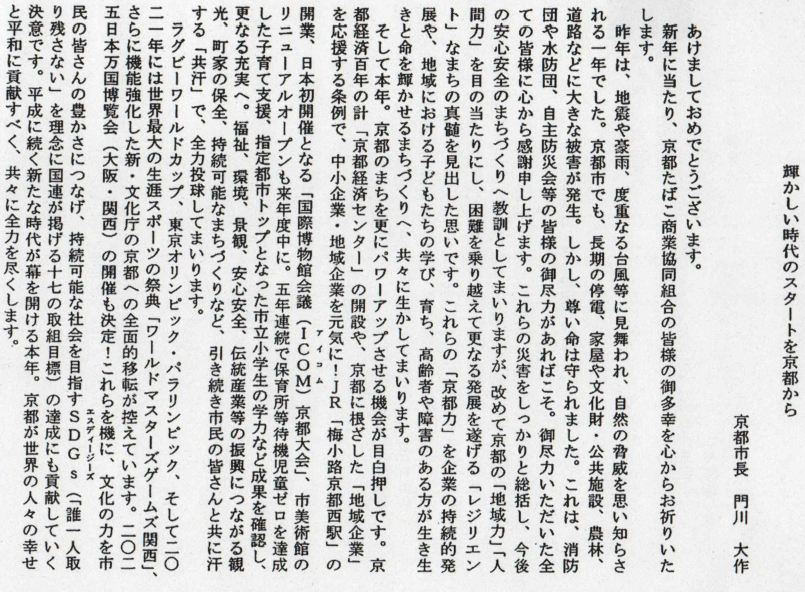 輝かしい時代のスタートを京都から
京都市長　門川　大作
あけましておめでとうございます。
新年に当たり、京都たばこ商業協同組合の皆様の御多幸を心からお祈りいた
します。
昨年は、地震や豪雨、度重なる台風等に見舞われ、自然の脅威を思い知らさ
れる一年でした。京都市でも、長期の停電、家屋や文化財・公共施設、農林、
道路などに大きな被害が発生。しかし、尊い命は守られました。これは、消防
団や水防団、自主防災会等の皆様の御尽力があればこそ。御尽力いただいた全
ての皆様に心から感謝申し上げます。これらの災害をしっかりと総括し、今後
の安心安全のまちづくりへ教訓としてまいりますが、改めて京都の「地域力」「人
間力」を目の当たりにし、困難を乗り越えて更なる発展を遂げる「レジリエン
ト」なまちの真髄を見出した思いです。これらの「京都力」を企業の持続的発
展や、地域における子どもたちの学び、育ち、高齢者や障害のある方が生き生
きと命を輝かせるまちづくりへ、共々に生かしてまいります。
そして本年。京都のまちを更にパワーアップさせる機会が目白押しです。京
都経済百年の計「京都経済センター」の開設や、京都に根ざした「地域企業」
を応援する条例で、中小企業・地域企業を元気に！ＪＲ「梅小路京都西駅」の
開業、日本初開催となる「国際博物館会議（ＩＣＯＭ）京都大会」、市美術館の
アイコム
リニューアルオープンも来年度中に。五年連続で保育所等待機児童ゼロを達成
した子育て支援、指定都市トップとなった市立小学生の学力など成果を確認し、
更なる充実へ。福祉、環境、景観、安心安全、伝統産業等の振興につながる観
光、町家の保全、持続可能なまちづくりなど、引き続き市民の皆さんと共に汗
する「共汗」で、全力投球してまいります。
ラグビーワールドカップ、東京オリンピック・パラリンピック、そして二〇
二一年には世界最大の生涯スポーツの祭典「ワールドマスターズゲームズ関西」、
さらに機能強化した新・文化庁の京都への全面的移転が控えています。二〇二
五日本万国博覧会（大阪・関西）の開催も決定！これらを機に、文化の力を市
民の皆さんの豊かさにつなげ、持続可能な社会を目指すＳＤＧｓ（「誰一人取
エスディージーズ
り残さない」を理念に国連が掲げる十七の取組目標）の達成にも貢献していく
決意です。平成に続く新たな時代が幕を開ける本年。京都が世界の人々の幸せ
と平和に貢献すべく、共々に全力を尽くします。